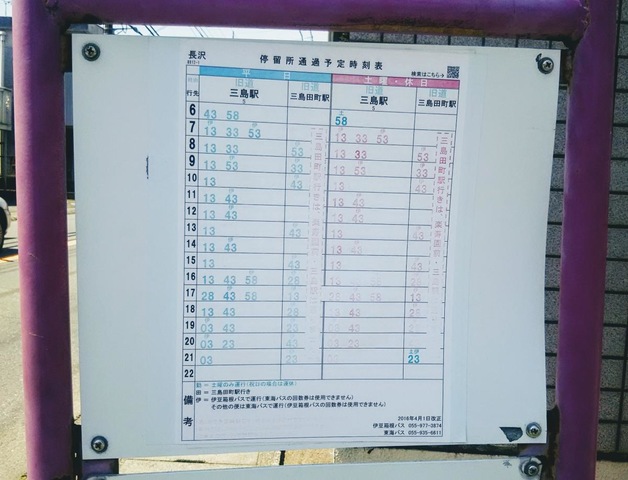 長沢
停留所通過予定時刻表
検索はこちら→
平日
土曜・休日
行先 旧道 三島駅 旧道 三島田町駅 旧道 三島駅 旧道
6 43 58 58
7 13 33 53 13 33 53
8 13 33 53 13 33 53
9 13 53 33 13 53 33
10 13 43 13 43
11 13 43 13 43
12 13 43 13 43
13 13 43 13 43
14 13 43 13 43
15 13 43 13 43
16 13 43 58 28 13 43 28
17 28 43 58 13 28 43 58 13
18 13 43 28 13 43 28
19 03 43 23 43 23
20 03 23 43
21 03 23 23
22
三島田町駅行きは
備考
= 土曜のみ運行(祝日の場合は運休)
田 = 三島田町駅行き
伊 = 伊豆箱根バスで運行(東海バスの回数券は使用できません)
その他の便は東海バスで運行(伊豆箱根バスの回数券は使用できません)
2016年4月1日改正
伊豆箱根バス 055-977-3874
東海バス 055-935-6611